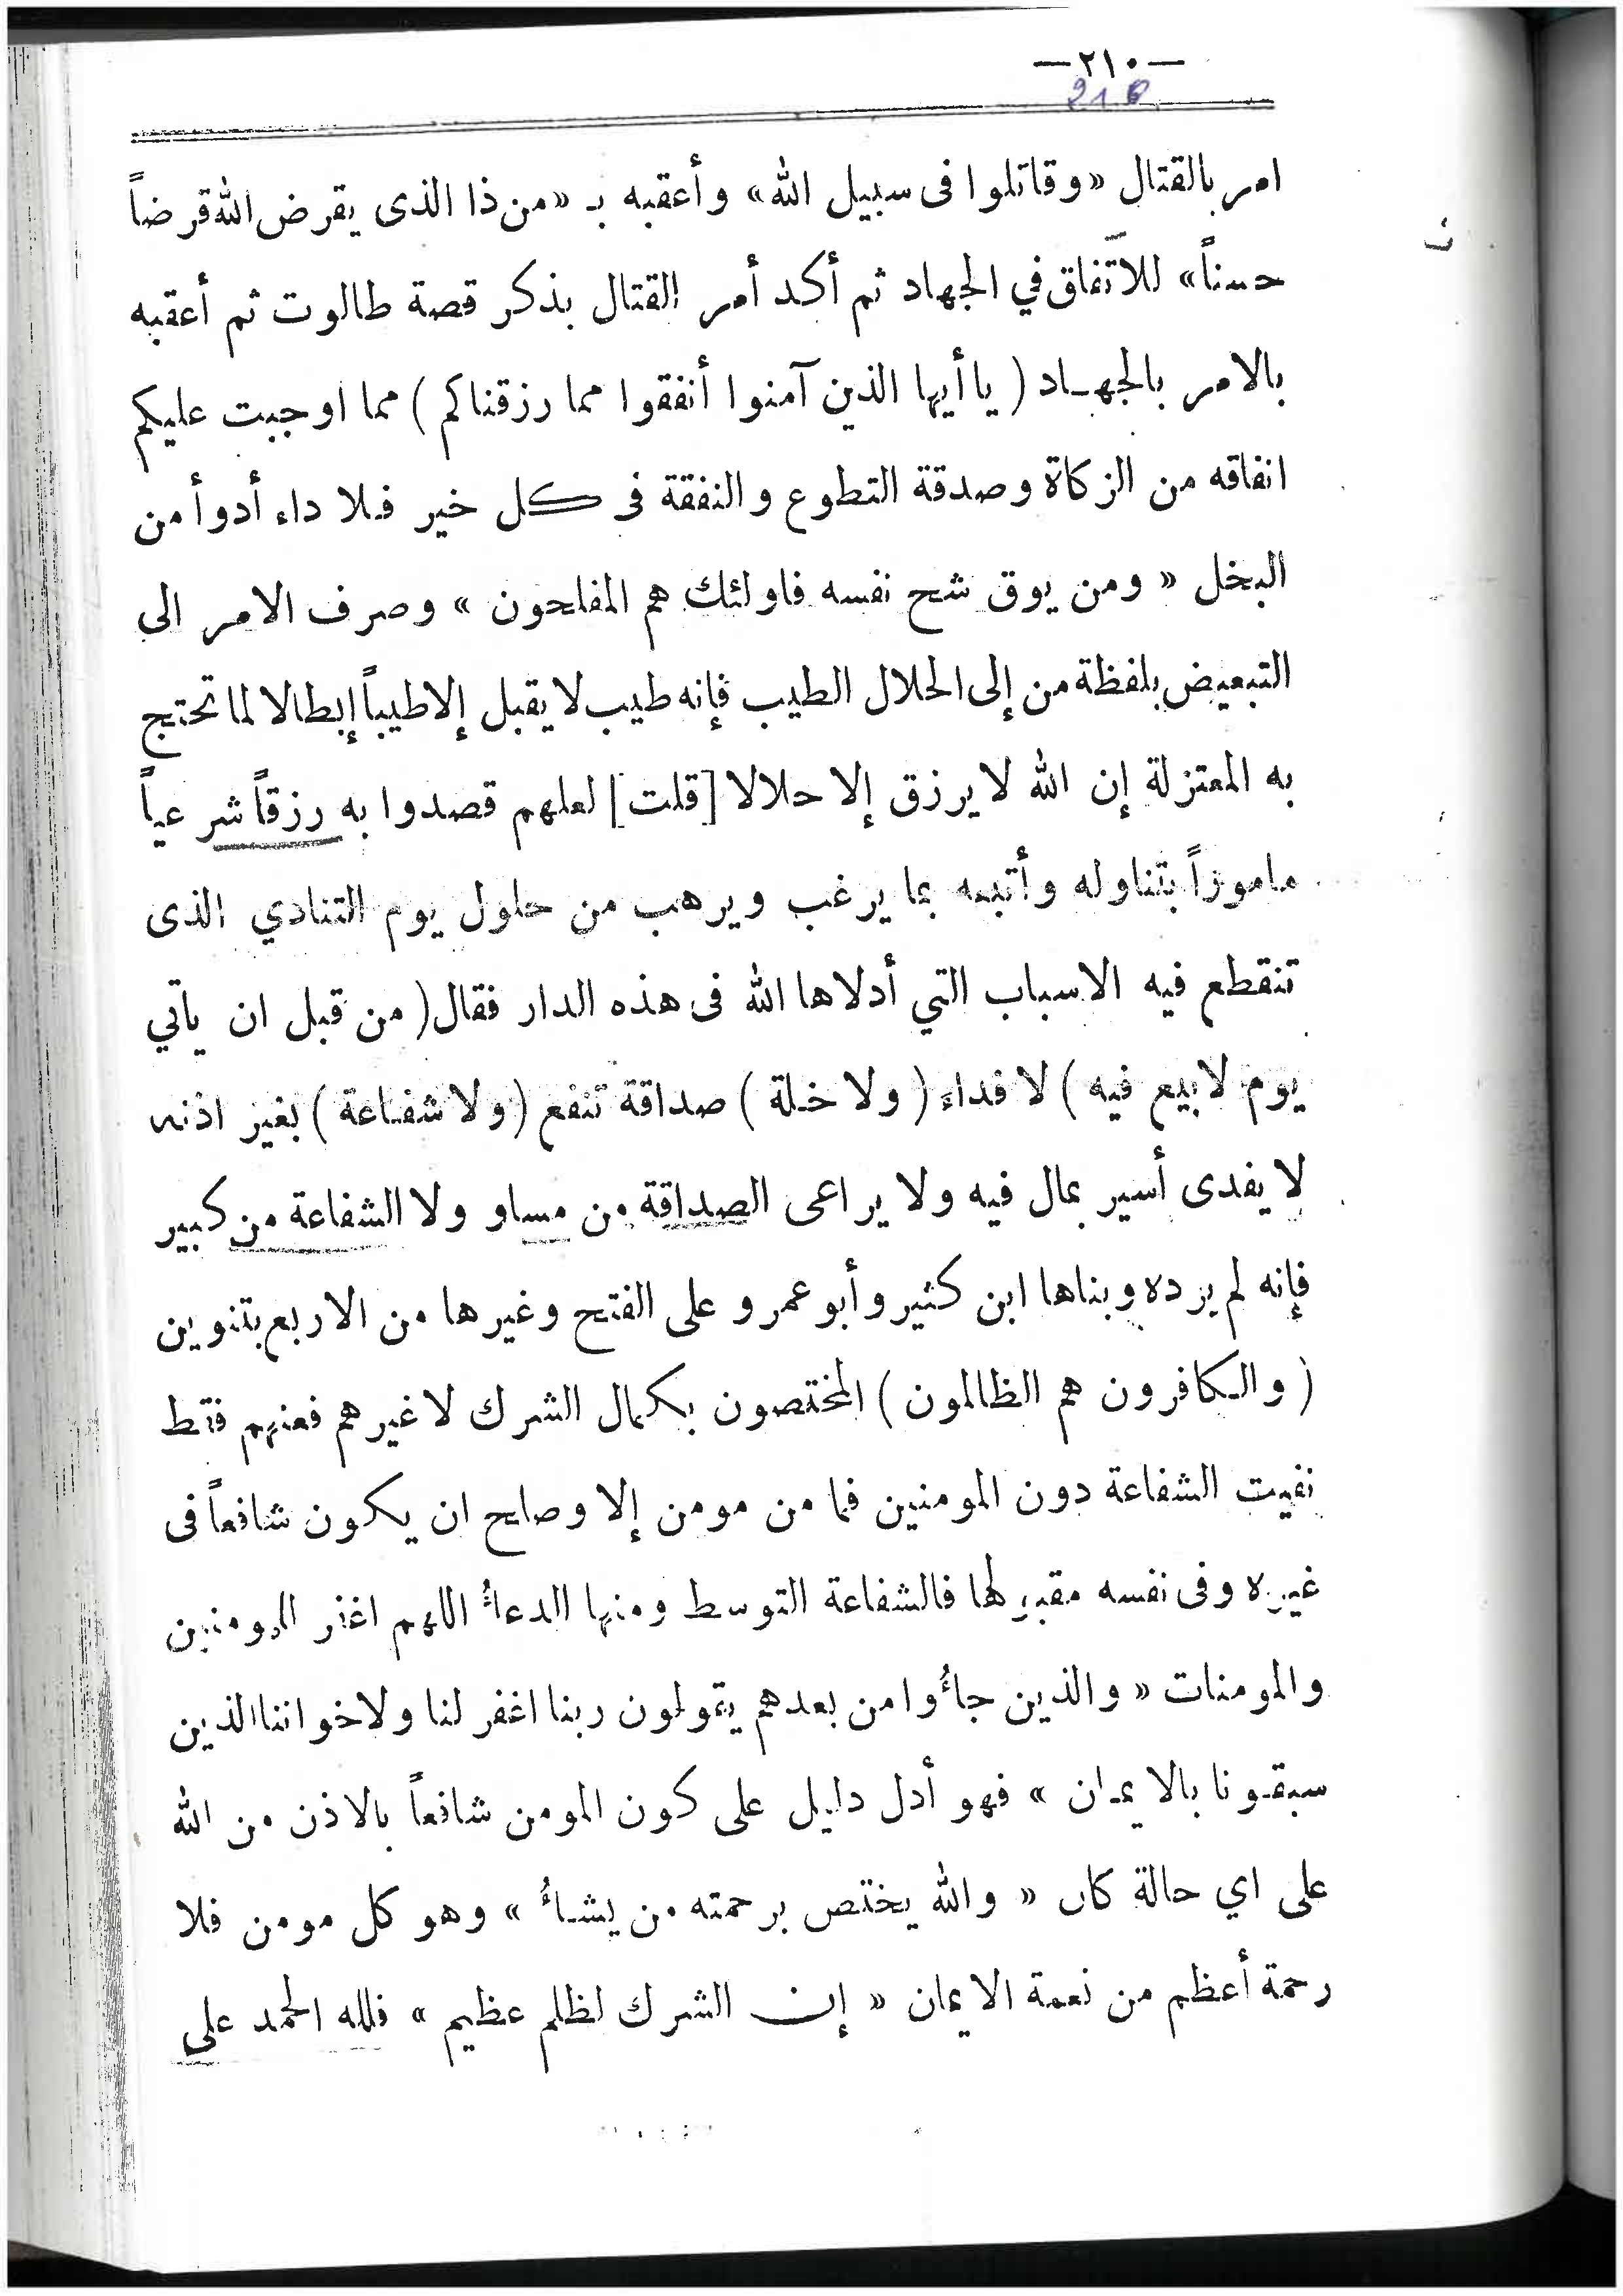 —٢١٠—
210
امر بالقتال «وقاتلوا فى سبيل الله» وأعقبه بـ «من ذا الذى يقرض الله قرضاً
حسناً» للاتفاق في الجهاد ثم أكد أمر القتال بذكر قصة طالوت ثم أعقبه
بالامر بالجهـاد ( يا أيها الذين آمنوا أنفقوا مما رزقناكم ) مما اوجبت عليكم
انفاقه من الزكاة وصدقة التطوع والنفقة فى كل خير فلا داء أدوأ من
البخل « ومن يوق شح نفسه فاولئك هم المفلحون » وصرف الامر الى
التبعيض بلفظة من إلى الحلال الطيب فإنه طيب لا يقبل إلا طيباً إبطالا لما تحتج
به المعتزلة إن الله لا يرزق إلا حلالا [قلت] لعلهم قصدوا به رزقاً شرعياً
ماموراً بتناوله وأتبعه بما يرغب ويرهب من حلول يوم التنادي الذى
تنقطع فيه الاسباب التي أدلاها الله فى هذه الدار فقال ( من قبل ان ياتي
يوم لا بيع فيه ) لا فداء ( ولا خلة ) صداقة تنفع ( ولا شفاعة ) بغير اذنه
لا يفدى أسير بمال فيه ولا يراعى الصداقة من مساو ولا الشفاعة من كبير
فإنه لم يرده وبناها ابن كثير وأبو عمرو على الفتح وغيرها من الاربع بتنوين
( والكافرون هم الظالمون ) المختصون بكمال الشرك لا غيرهم فعنهم فقط
نفيت الشفاعة دون المومنين فما من مومن إلا وصالح ان يكون شافعاً فى
غيره وفى نفسه مقبولها فالشفاعة التوسط ومنها الدعاءُ اللهم اغفر للمومنين
والمومنات « والذين جاءُوا من بعدهم يقولون ربنا اغفر لنا ولاخواننا الذين
سبقونا بالايمان » فهو أدل دليل على كون المومن شافعاً بالاذن من الله
على اي حالة كان « والله يختص برحمته من يشاءُ » وهو كل مومن فلا
رحمة أعظم من نعمة الايمان « إن الشرك لظلم عظيم » فلله الحمد على